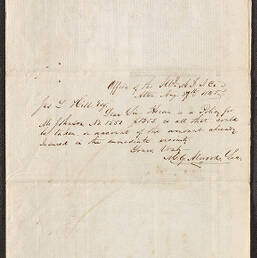 Office of the Ills M. F. I. Co.
Alton Aug. 29th 185
Jas L. Hill Esq.
Dear Sir. Herein is a Policy for
Mr Johnson No 1551 $ is all that could
be taken on account of the amount already
insured in the immediate vicinity.
Yours Truly
M. G. Sec.